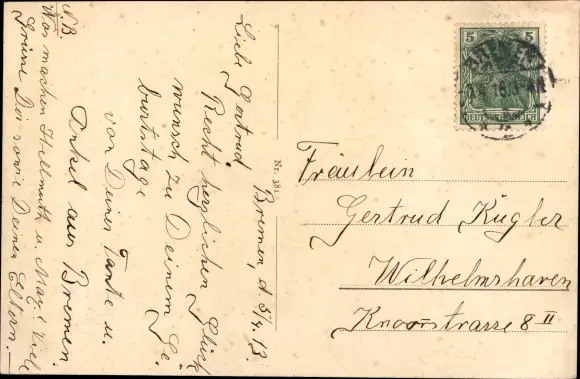 Bremen, d. 5/4. 13.
Liebe Gertrud.
Recht herzlichen Glück
wunsch zu Deinem Ge-
burtstage
von Deiner Tante u.
Onkel aus Bremen.
NB
Was machen Hellmuth u. Max? Viele
Grüsse Dir sowie Deinen Eltern.—
Nr. 381
5 5
DEUTSCHES REICH
Fräulein
Gertrud Kügler
Wilhelmshaven
Knoorrstrasse 8 II